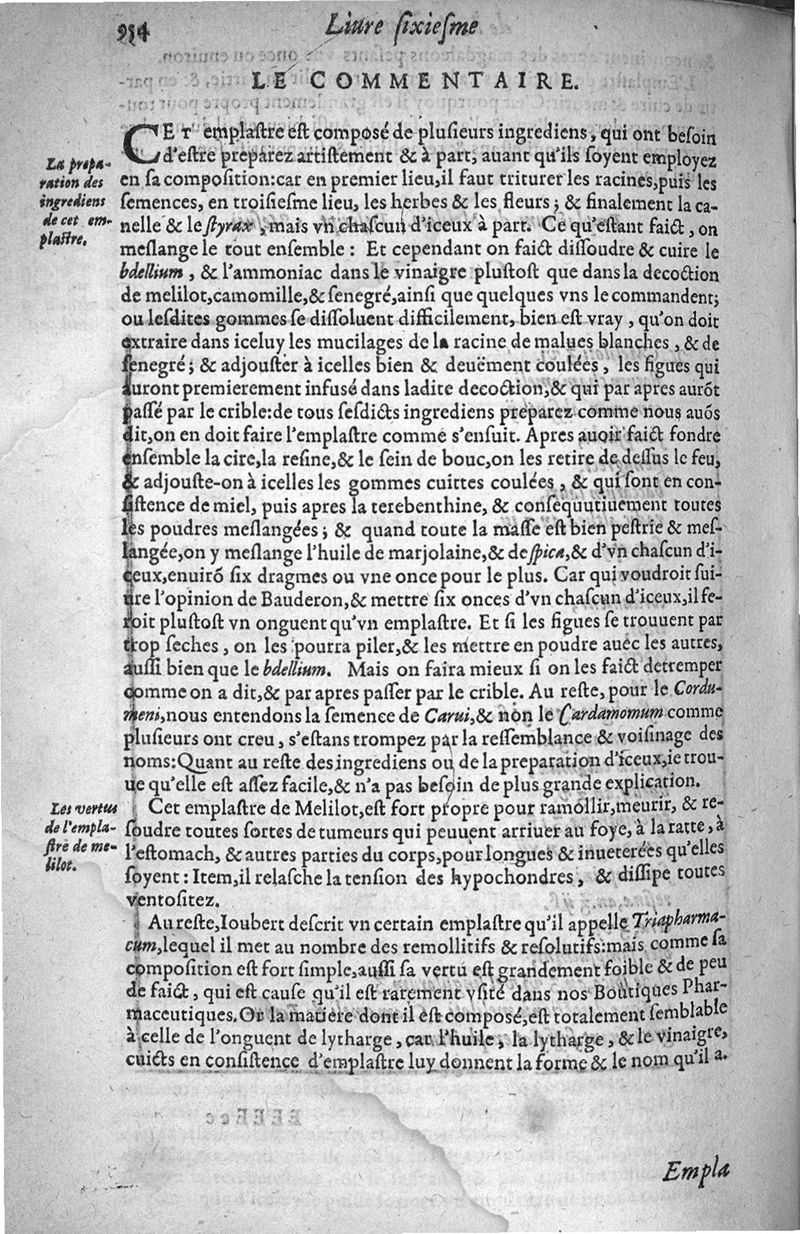 954 Liure sixiesme
LE COMMENTAIRE.
CET emplastre est composé de plusieurs ingrediens, qui ont besoin
d'estre preparez artistement & à part, auant qu'ils soyent employez
en sa composition: car en premier lieu, il faut triturer les racines, puis les
semences, en troisiesme lieu, les herbes & les fleurs; & finalement la ca-
nelle & le styrax, mais vn chascun d'iceux à part. Ce qu'estant faict, on
meslange le tout ensemble: Et cependant on faict dissoudre & cuire le
bdellium, & l'ammoniac dans le vinaigre plustost que dans la decoction
de melilot, camomille, & senegré, ainsi que quelques vns le commandent;
ou lesdites gommes se dissoluent difficilement, bien est vray, qu'on doit
extraire dans iceluy les mucilages de la racine de malues blanches, & de
senegré; & adjouster à icelles bien & deuëment coulées, les figues qui
auront premierement infusé dans ladite decoction, & qui par apres aurõt
passé par le crible: de tous sesdicts ingrediens preparez comme nous auõs
dit, on en doit faire l'emplastre comme s'ensuit. Apres auoir faict fondre
ensemble la cire, la resine, & le sein de bouc, on les retire de dessus le feu,
& adjouste-on à icelles les gommes cuittes coulées, & qui sont en con-
sistence de miel, puis apres la terebenthine, & consequutiuement toutes
les poudres meslangées; & quand toute la masse est bien pestrie & mes-
langée, on y meslange l'huile de marjolaine, & de spica, & d'vn chascun d'i-
ceux, enuirõ six dragmes ou vne once pour le plus. Car qui voudroit sui-
ure l'opinion de Bauderon, & mettre six onces d'vn chascun d'iceux, il fe-
roit plustost vn onguent qu'vn emplastre. Et si les figues se trouuent par
trop seches, on les pourra piler, & les mettre en poudre auec les autres,
aussi bien que le bdellium. Mais on faira mieux si on les faict detremper
comme on a dit, & par apres passer par le crible. Au reste, pour le Cordu-
meni, nous entendons la semence de Carui, & non le Cardamomum comme
plusieurs ont creu, s'estans trompez par la ressemblance & voisinage des
noms: Quant au reste des ingrediens ou de la preparation d'iceux, ie trou-
ue qu'elle est assez facile, & n'a pas besoin de plus grande explication.
Cet emplastre de Melilot, est fort propre pour ramollir, meurir, & re-
soudre toutes sortes de tumeurs qui peuuent arriuer au foye, à la ratte, à
l'estomach, & autres parties du corps, pour longues & inueterées qu'elles
soyent: Item, il relasche la tension des hypochondres, & dissipe toutes
ventositez.
Au reste, Ioubert descrit vn certain emplastre qu'il appelle Triapharma-
cum, lequel il met au nombre des remollitifs & resolutifs: mais comme sa
composition est fort simple, aussi sa vertu est grandement foible & de peu
de faict, qui est cause qu'il est rarement vsité dans nos Boutiques Phar-
maceutiques. Or la matiere dont il est composé, est totalement semblable
à celle de l'onguent de lytharge, car l'huile, la lytharge, & le vinaigre,
cuicts en consistence d'emplastre luy donnent la forme & le nom qu'il a.
Empla
La prepa-
ration des
ingrediens
de cet em-
plastre.
Les vertus
de l'empla-
stre de me-
lilot.